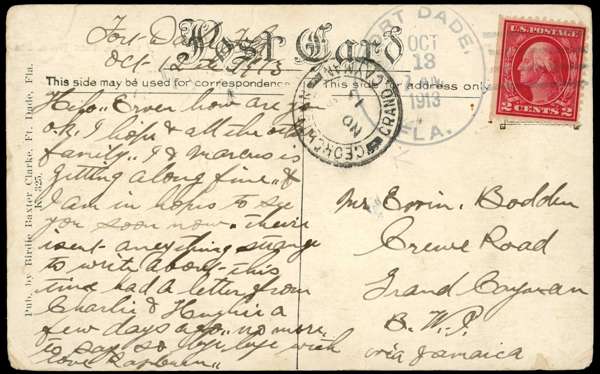 Fort Dade, Fla
Oct 12th 1913
Post Card
This side may be used for correspondence
This side address only
FORT DADE,
OCT
13
1913
FLA.
GEORGETOWN
GRAND CAYMAN
NO
U.S. POSTAGE
2 CENTS 2
Hello Ervin how are you
o.k. I hope & all the other
family.. I & Marcus is
getting along fine.. &
I am in hopes to see
you soon now. theirs
isent aneything strange
to write about this
time had a letter from
Charlie & Hughie a
few days ago.. no more
to say so bye bye with
love Rayburn..
Mr Ervin. Bodden
Crewe Road
Grand Cayman
B. W. I.
via Jamaica
Pub. by Birdie Baxter Clarke, Ft. Dade, Fla.